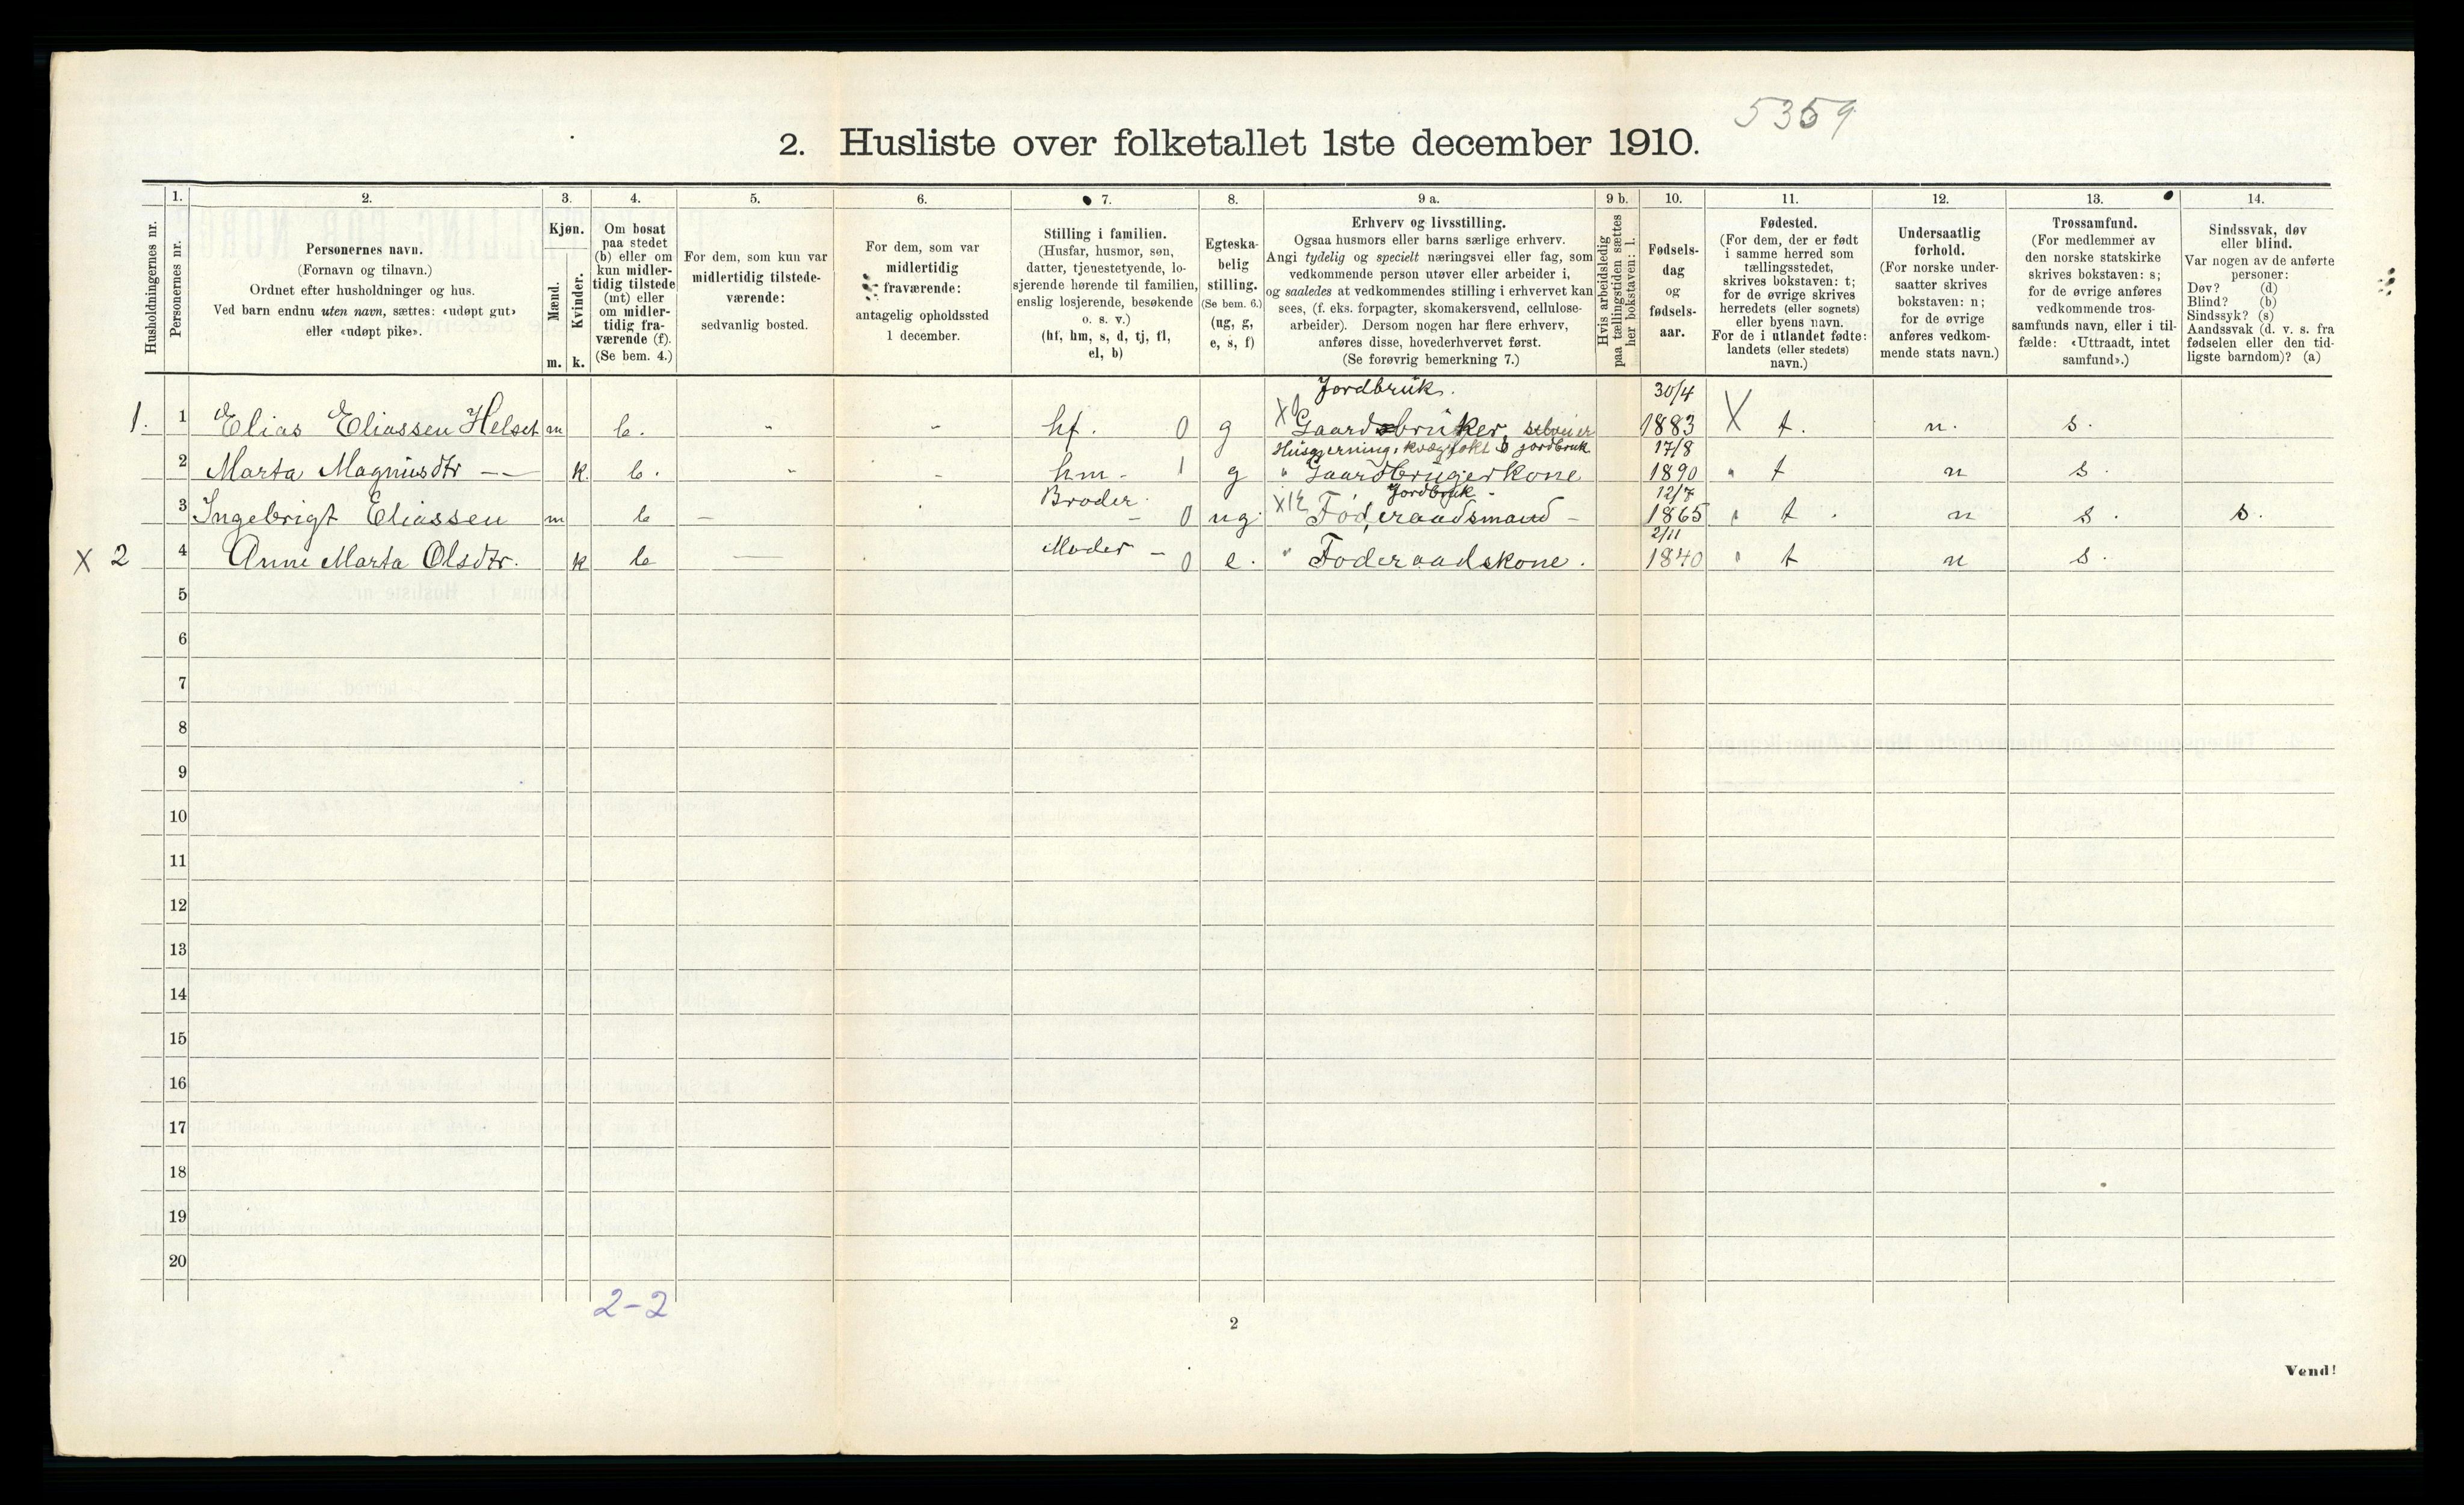 5359
2. Husliste over folketallet 1ste december 1910.
Husholdningernes nr.
1.
Personernes nr.
2.
Personernes navn.
(Fornavn og tilnavn.)
Ordnet efter husholdninger og hus.
Ved barn endnu uten navn, sættes: «udøpt gut»
eller «udøpt pike».
3.
Kjøn.
Mænd.
Kvinder.
m. k.
4.
Om bosat
paa stedet
(b) eller om
kun midler-
tidig tilstede
(mt) eller
om midler-
tidig fra-
værende (f).
(Se bem. 4.)
5.
For dem, som kun var
midlertidig tilstede-
værende:
sedvanlig bosted.
6.
For dem, som var
midlertidig
fraværende:
antagelig opholdssted
1 december.
7.
Stilling i familien.
(Husfar, husmor, søn,
datter, tjenestetyende, lo-
sjerende hørende til familien,
enslig losjerende, besøkende
o. s. v.)
(hf, hm, s, d, tj, fl,
el, b)
8.
Egteska-
belig
stilling.
(Se bem. 6.)
(ug, g,
e, s, f)
9 a.
Erhverv og livsstilling.
Ogsaa husmors eller barns særlige erhverv.
Angi tydelig og specielt næringsvei eller fag, som
vedkommende person utøver eller arbeider i,
og saaledes at vedkommendes stilling i erhvervet kan
sees, (f. eks. forpagter, skomakersvend, cellulose-
arbeider). Dersom nogen har flere erhverv,
anføres disse, hovederhvervet først.
(Se forøvrig bemerkning 7.)
9 b.
Hvis arbeidsledig
paa tællingstiden sættes
her bokstaven: l.
10.
Fødsels-
dag
og
fødsels-
aar.
11.
Fødested.
(For dem, der er født
i samme herred som
tællingsstedet,
skrives bokstaven: t;
for de øvrige skrives
herredets (eller sognets)
eller byens navn.
For de i utlandet fødte:
landets (eller stedets)
navn.)
12.
Undersaatlig
forhold.
(For norske under-
saatter skrives
bokstaven: n;
for de øvrige
anføres vedkom-
mende stats navn.)
13.
Trossamfund.
(For medlemmer av
den norske statskirke
skrives bokstaven: s;
for de øvrige anføres
vedkommende tros-
samfunds navn, eller i til-
fælde: «Uttraadt, intet
samfund».)
14.
Sindssvak, døv
eller blind.
Var nogen av de anførte
personer:
Døv? (d)
Blind? (b)
Sindssyk? (s)
Aandssvak (d. v. s. fra
fødselen eller den tid-
ligste barndom)? (a)
Jordbruk. 30/4
1. 1 Elias Eliassen Helset m b. - - hf. 0 g Gaardbruker, selveier 1883 X t. n. s.
Husgjerning, kvægrøkt & jordbruk 17/8
2 Marta Magnusdtr — k b. - - hm - 1 g " Gaardbrugerkone 1890 " t n s.
Broder Jordbruk - 12/7
3 Ingebrigt Eliassen m b — - 0 ug Føderaadsmand - 1865 " t. n s. s.
Moder 2/11
X 2 4 Anne Marta Olsdtr. k b — - 0 e. " Føderaadskone. 1840 " t n s.
5
6
7
8
9
10
11
12
13
14
15
16
17
18
19
20
2-2
2
Vend!